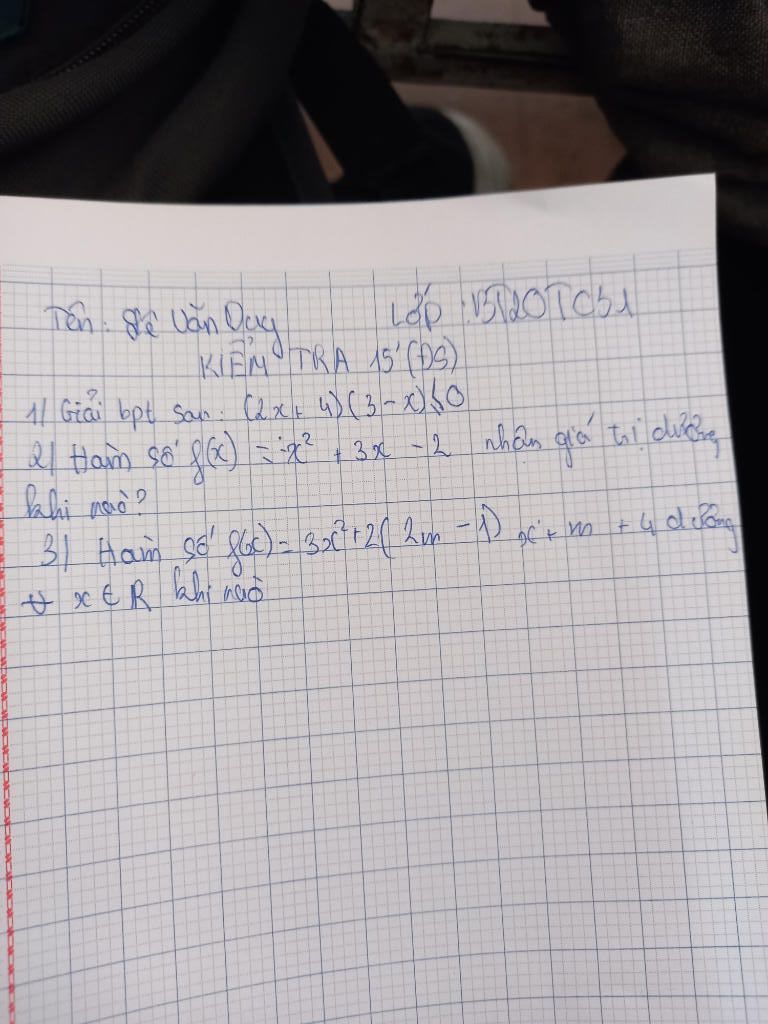 Tên: Văn Duy Lớp:
KIỂM TRA 15' (ĐS)
1) Giải bpt sau: (2x+4)(3-x)≤0
2) Hàm số f(x) = -x² + 3x - 2 nhận giá trị dương
khi nào?
3) Hàm số f(x) = 3x² + 2(2m - 1)x + m + 4 dương
∀ x ∈ R khi nào